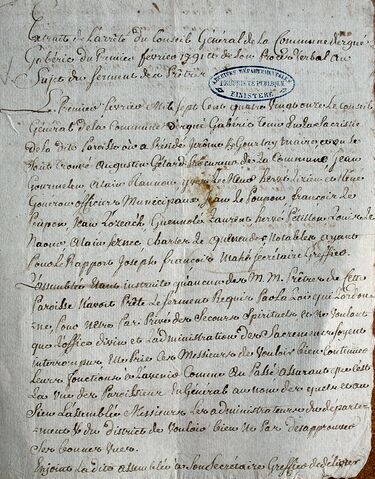 Extrait de l'arrété du Conseil General de la Commune d'ergué
Gabéric du Premier fevrier 1791 et de son Procés verbal au
Sujet du serment des Prêtres
ARCHIVES DEPARTEMENTALES
PROPRIETE PUBLIQUE
FINISTERE
Le Premier fevrier Mil Sept Cent quatre vingt onze le Conseil
General de la Commune d'ergué Gabéric tenu dans la sacristie
de la dite Paroisse où Présidé Jerôme
trouvé Augustin Gelard Procureur de la Commune jean
Gourmelen alain Rannou yves Le Meur hervé et Réné
officiers Municipaux, jean Le Poupon françois Le
Poupon jean Lozeach Guennolé Laurent hervé Petillon Louis Le
Naour alain charles de quelen et Notables ayant
Pour Le Rapport joseph françois Mahé secrétaire Greffier
L'assemblée étant instruite qu'aucun des M.M. Prêtres de cette
Paroisse N'avoit Prêté Le serment Requis Par La Loi qui L'ordon-
ne, Pour N'etre Par Privé des Secours Spirituels et Ne voulant
que L'office divin et L'administration des Sacremens soyent
interrompus Prie Les Messieurs de vouloir bien Continuer
Leurs fonctions à L'avenir Comme au Passé assurant que c'est
La vue des Paroissiens en General au nom des quels et au
Sien L'assemblée Messieurs Les administrateurs du departe-
ment et du district de vouloir bien Ne Par désaprouver
Ses bonnes vues.
Enjoint La dite assemblée a Son Secrétaire Greffier de délivrer